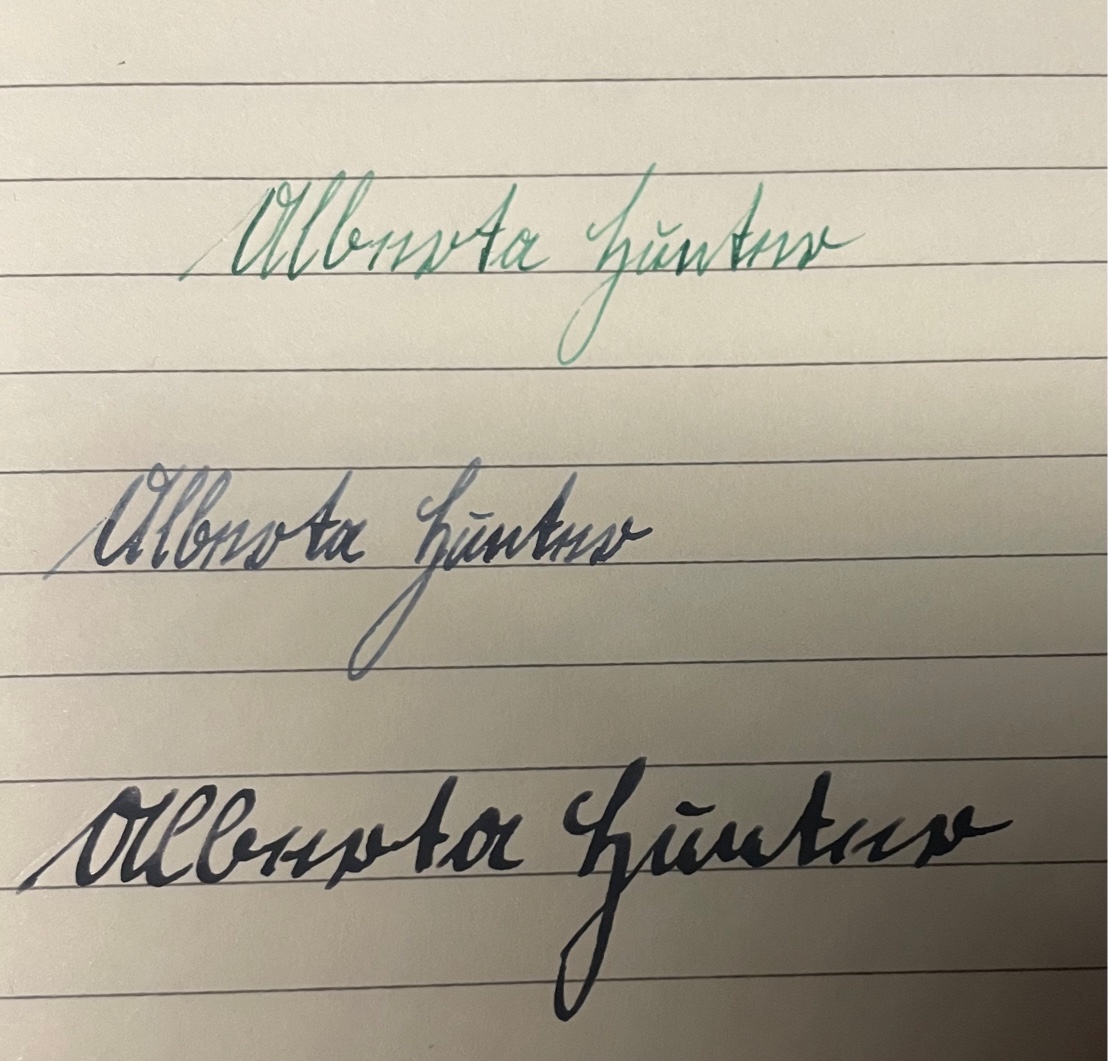 Alberta Hunter
Alberta Hunter
Alberta Hunter